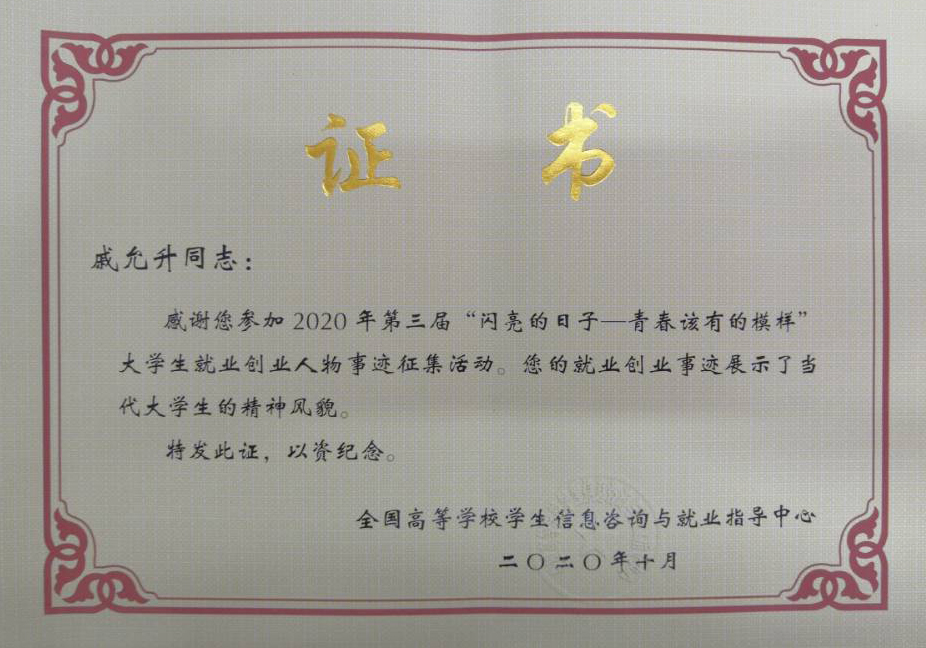 证 书
戚允升同志：
感谢您参加 2020 年第三届“闪亮的日子—青春该有的模样”
大学生就业创业人物事迹征集活动。您的就业创业事迹展示了当
代大学生的精神风貌。
特发此证，以资纪念。
全国高等学校学生信息咨询与就业指导中心
二〇二〇年十月